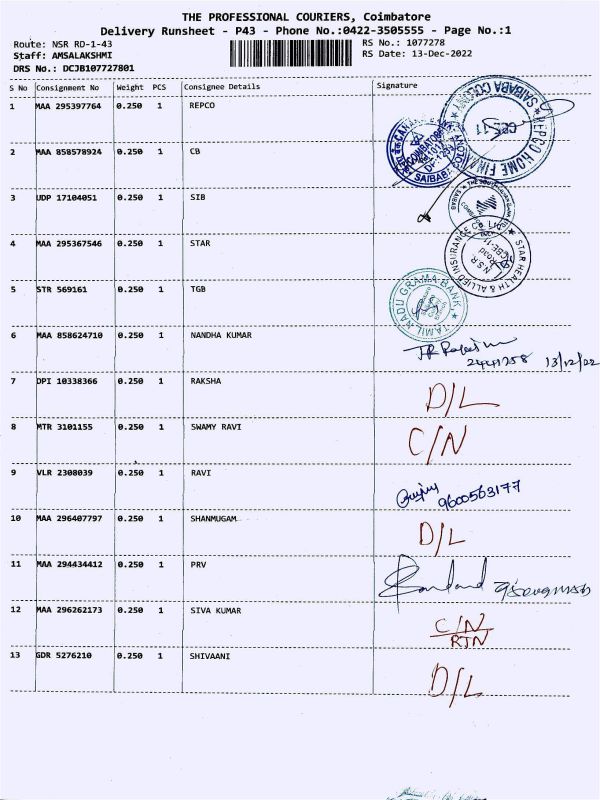 THE PROFESSIONAL COURIERS, Coimbatore
Delivery Runsheet - P43 - Phone No.:0422-3505555 - Page No.:1
Route: NSR RD-1-43
Staff: AMSALAKSHMI
DRS No.: DCJB107727801
RS No.: 1077278
RS Date: 13-Dec-2022
S No Consignment No Weight PCS Consignee Details Signature
1 MAA 295397764 0.250 1 REPCO
REPCO HOME FINA
SAIBABA COLONY
CBE-11
2 MAA 858578924 0.250 1 CB
COIMBATORE
SAIBABA COLONY
3 UDP 17104051 0.250 1 SIB
4 MAA 295367546 0.250 1 STAR
STAR HEALTH & ALLIED INSURANCE CO
N.S.R. Road
CBE-11
5 STR 569161 0.250 1 TGB
TAMIL NADU GRAMA BANK
6 MAA 858624710 0.250 1 NANDHA KUMAR
13/12/22
7 DPI 10338366 0.250 1 RAKSHA D/L
8 MTR 3101155 0.250 1 SWAMY RAVI C/N
9 VLR 2308039 0.250 1 RAVI 9600563177
10 MAA 296407797 0.250 1 SHANMUGAM D/L
11 MAA 294434412 0.250 1 PRV
12 MAA 296262173 0.250 1 SIVA KUMAR C/N
RTN
13 GDR 5276210 0.250 1 SHIVAANI D/L